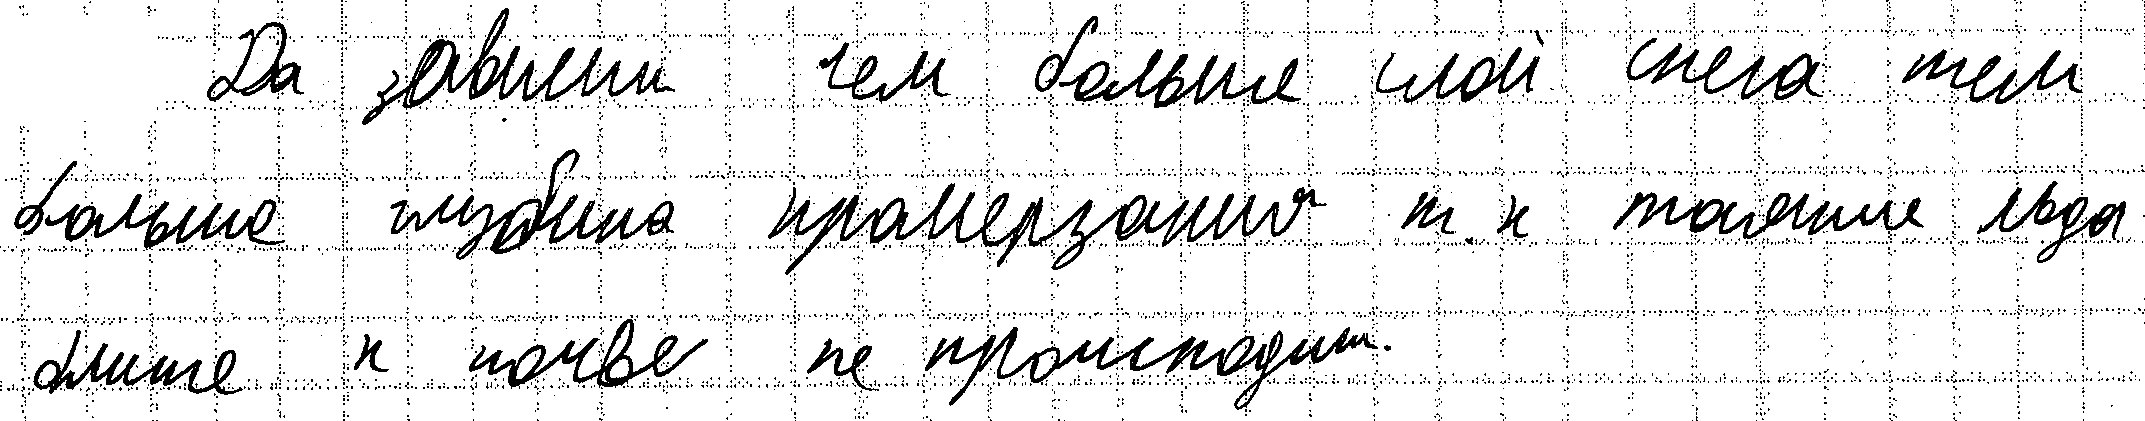 Да зависит чем больше слой снега тем
больше глубина промерзания т.к таяние льда
ближе к почве не происходит.